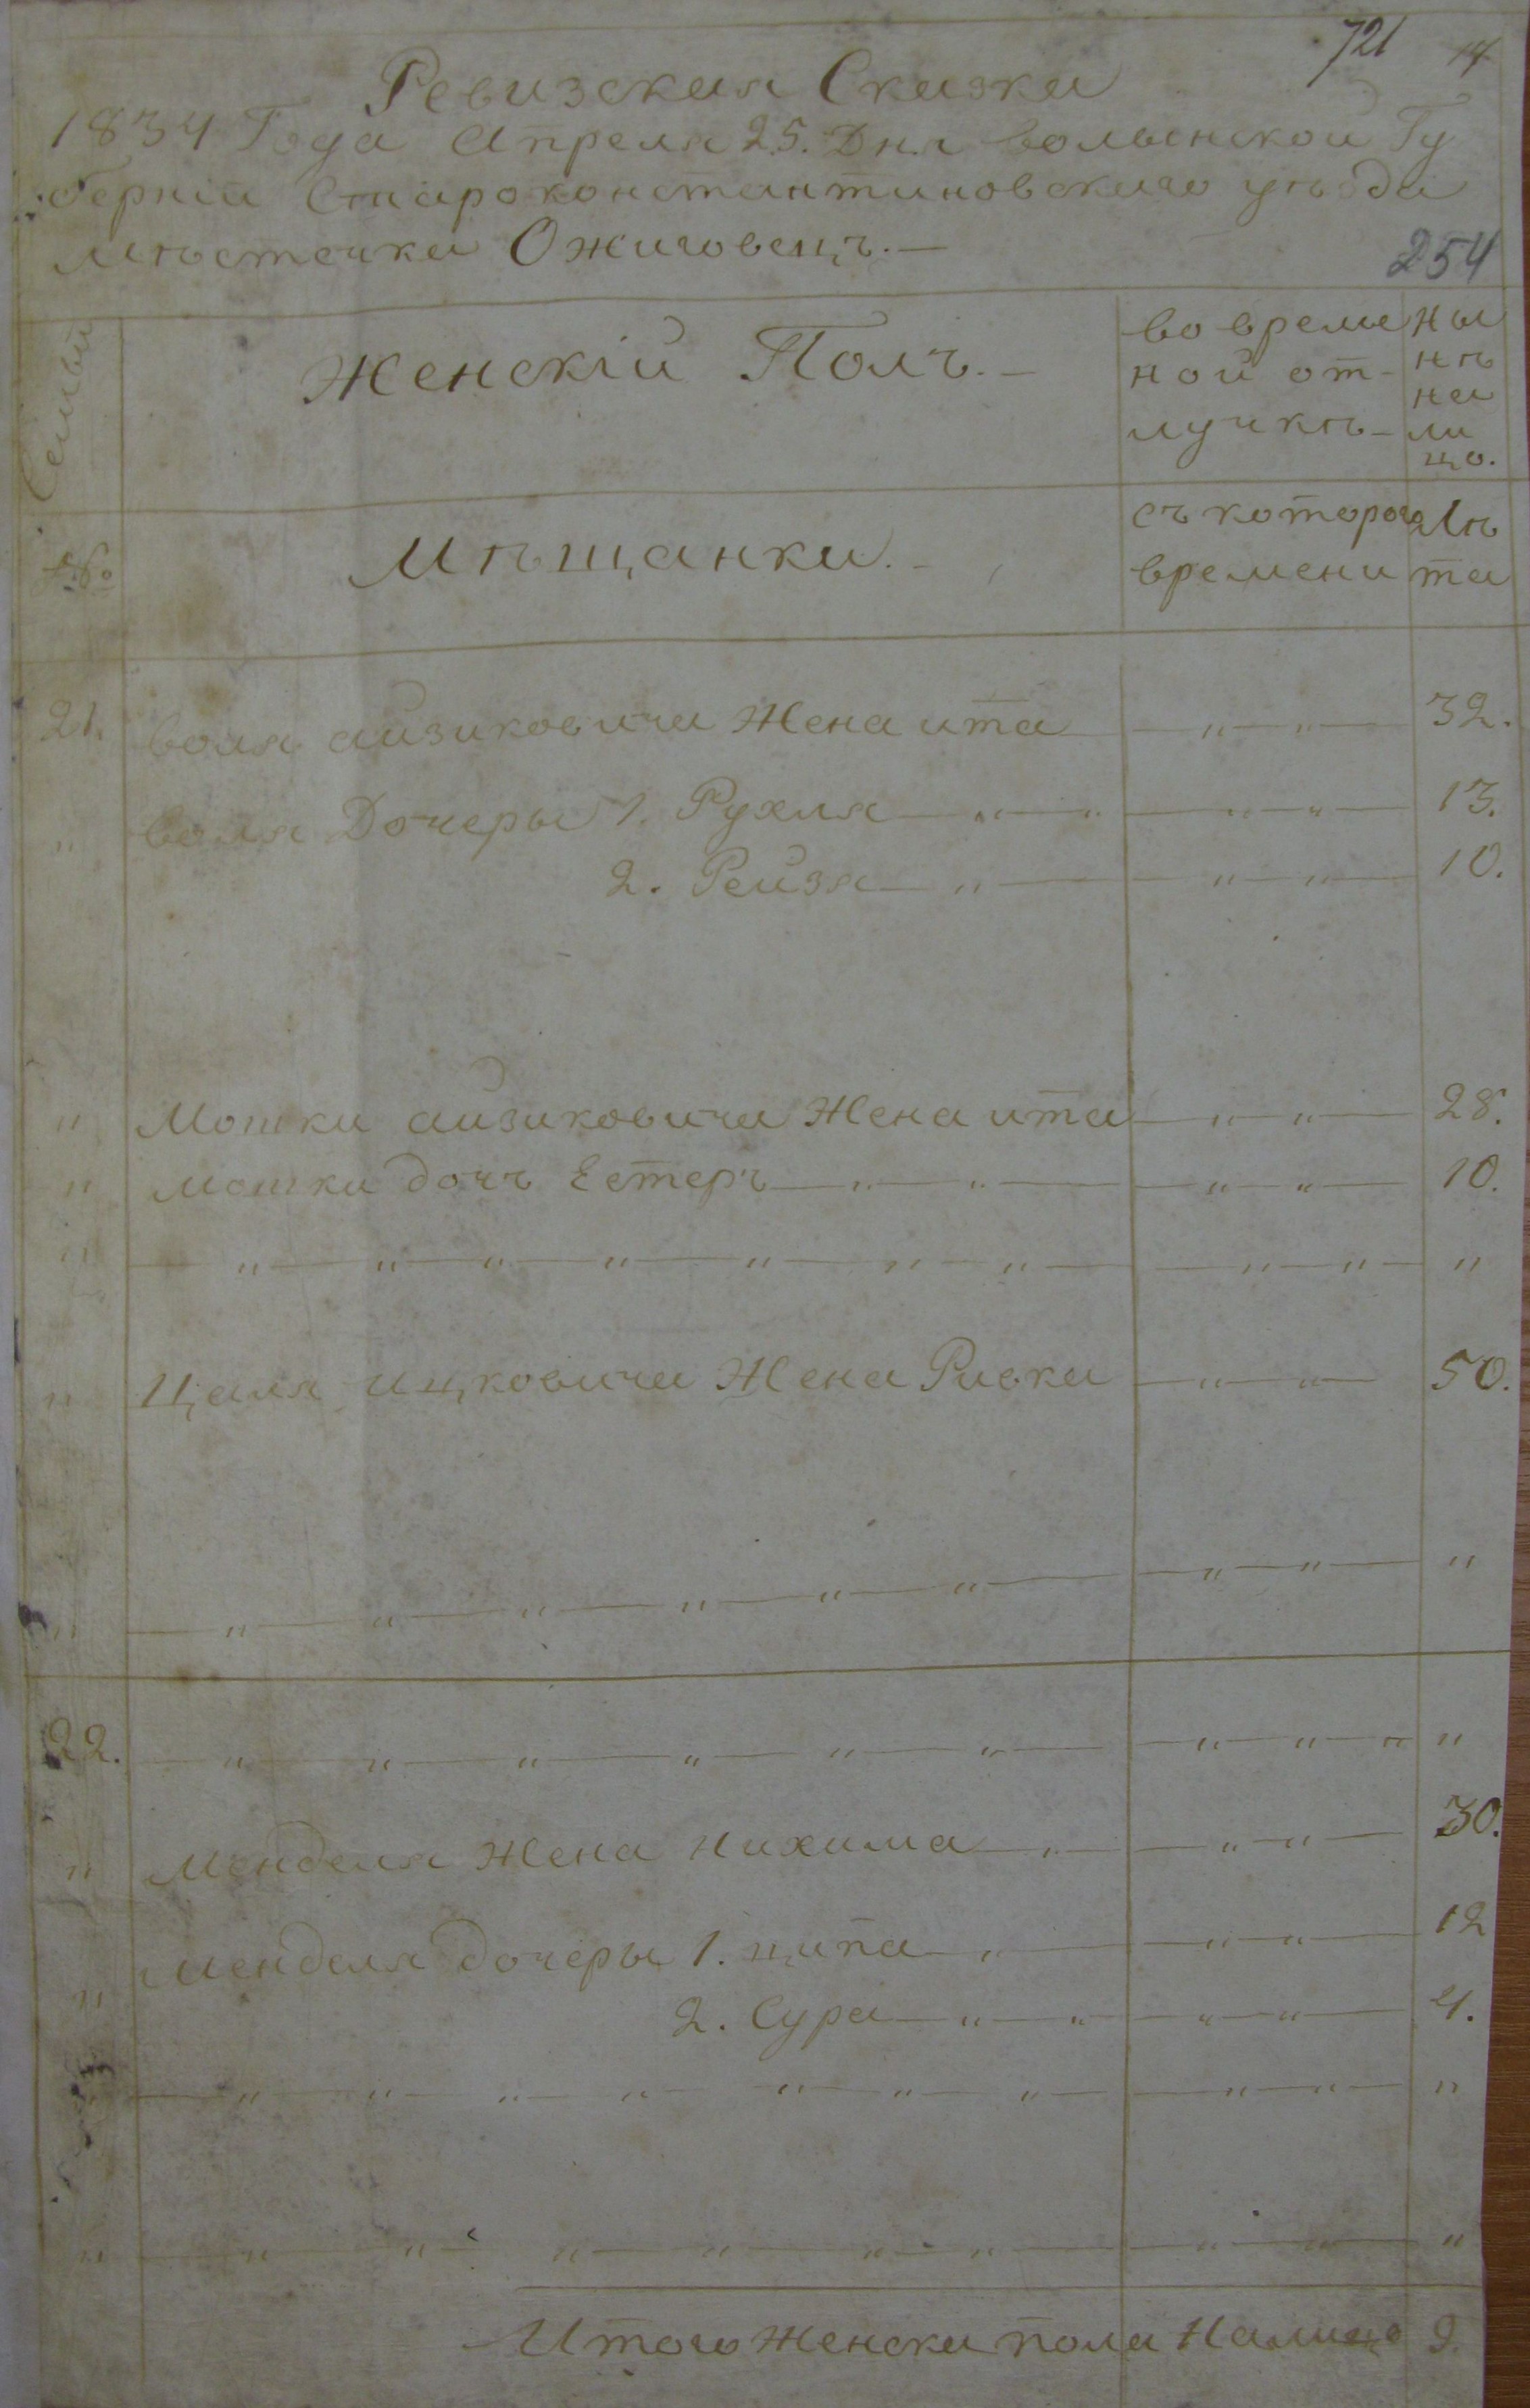 721 14
Ревизская Сказка
1834 Года Апреля 25. Дня волынской Гу
берніи Староконстантиновскаго уѣзда
мѣстечка Ожиговецъ.—
254
Семьи
Женскій Полъ.—
во време
ной от-
лучкѣ—
ны
нѣ
на
ли
цо.
№
Мѣщанки.—
съ котораго
времени
Лѣ
та
21. воля айзиковича Жена ита — " — " — 32.
" воля Дочеры 1. Рухля — " — " — " — " — 13.
2. Рейзя — " — " — " — 10.
" Мошки айзиковича Жена ита — " — " — 28.
" мошки дочъ Естеръ — " — " — " — " — 10.
" — " — " — " — " — " — " — " — " — " — "
" Цаля ицковича Жена Ривка — " — " — 50.
" — " — " — " — " — " — " — " — " — "
22. — " — " — " — " — " — " — " — " — " "
" Менделя Жена Нихима — " — " — " — 30.
" Менделя дочеры 1. ципа — " — " — " — 12
" 2. Сура — " — " — " — " — 4.
" — " — " — " — " — " — " — " — " — " — "
" — " — " — " — " — " — " — " — " — "
Итого Женска пола Налицо 9.